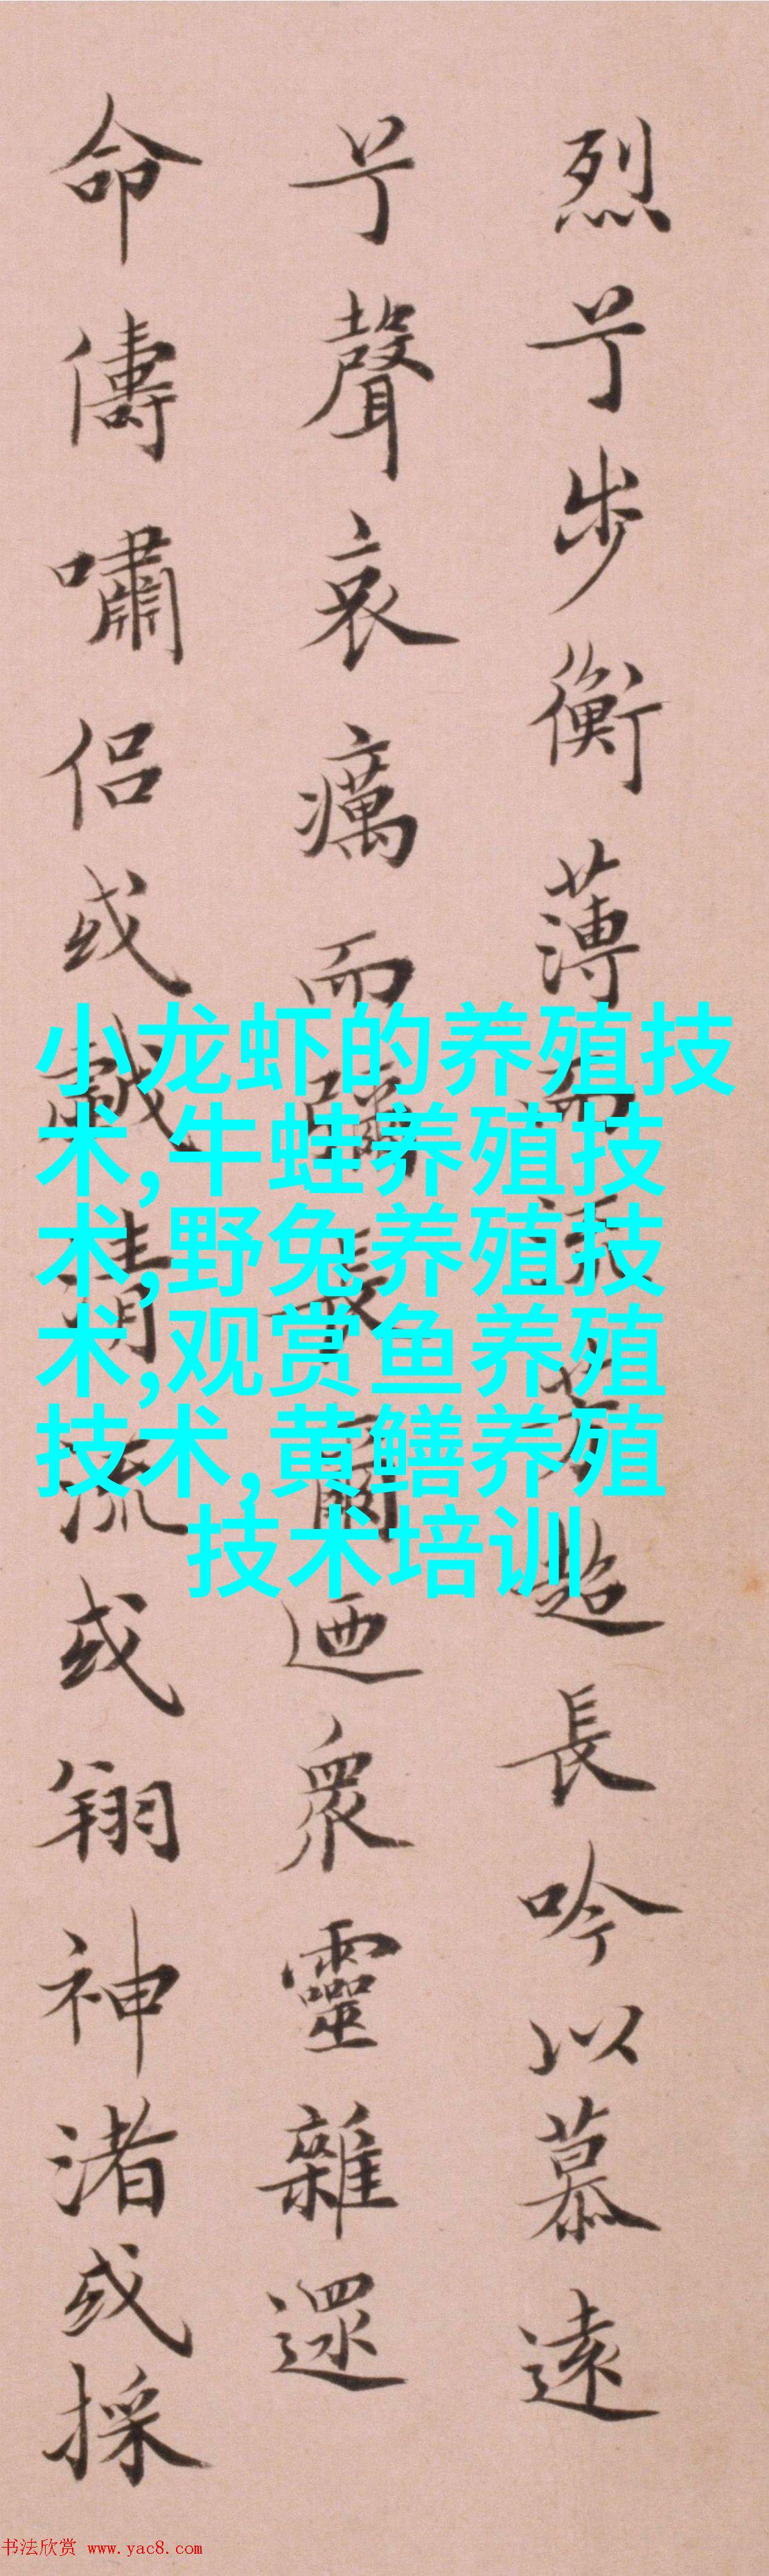 烈兮步衡薄而流芳超長吟以慕遠
兮聲哀癘而彌長爾迺衆靈雜遝
命儔嘯侣或戲清流或翔神渚或採
小龙虾的养殖技
术,牛蛙养殖技
术,野兔养殖技
术,观赏鱼养殖
技术,黄鳝养殖
技术培训
书法欣赏 www.yac8.com